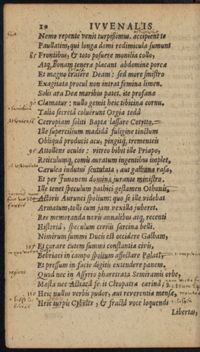 20 IVVENALIS
Nemo repente venit turpissimus. accipient te
Paullatim, qui longa domi redimicula sumunt
Frontibus, & toto posuere monilia collo,
Atq. Bonam tenera placant abdomine porca
Et magno cratere Deam: sed more sinistro
Exagitata procul non intrat femina limen.
Solis ara Dea maribus patet. ite profana
Clamatur: nullo gemit heic tibicina cornu.
Talia secreta coluerunt Orgia teda
Cecropiam soliti Bapta lassare Cotytto.
Ille supercilium madida fuligine tinctum
Obliqua producit acu, pingitq. trementeis
Attollens oculos: vitreo bibit ille Priapo,
Reticulumq. comis auratum ingentibus implet,
Cerulea indutus scutulata, aut galbana rasa,
Et per Iunonem domini jurante ministro.
Ille tenet speculum pathici gestamen Othonis,
Actoris Aurunci spolium: quo se ille videbat
Armatum, cum jam tolli vexilla juberet.
Res memoranda novis annalibus atq. recenti
Historia, speculum civilis sarcina belli.
Nimirum summi Ducis est occidere Galbam,
Et curare cutem summi constantia civis,
Bebriaci in campo spolium affectare Palati,
Et pressum in facie digitis extendere panem,
Quod nec in Assyrio pharetrata Semiramis orbe,
Masta nec Actiaca fecit Cleopatra carina.
Heic nullus verbis pudor, aut reverentia mensa,
Heic turpis Cybeles, & fracta voce loquendi
Libertas,